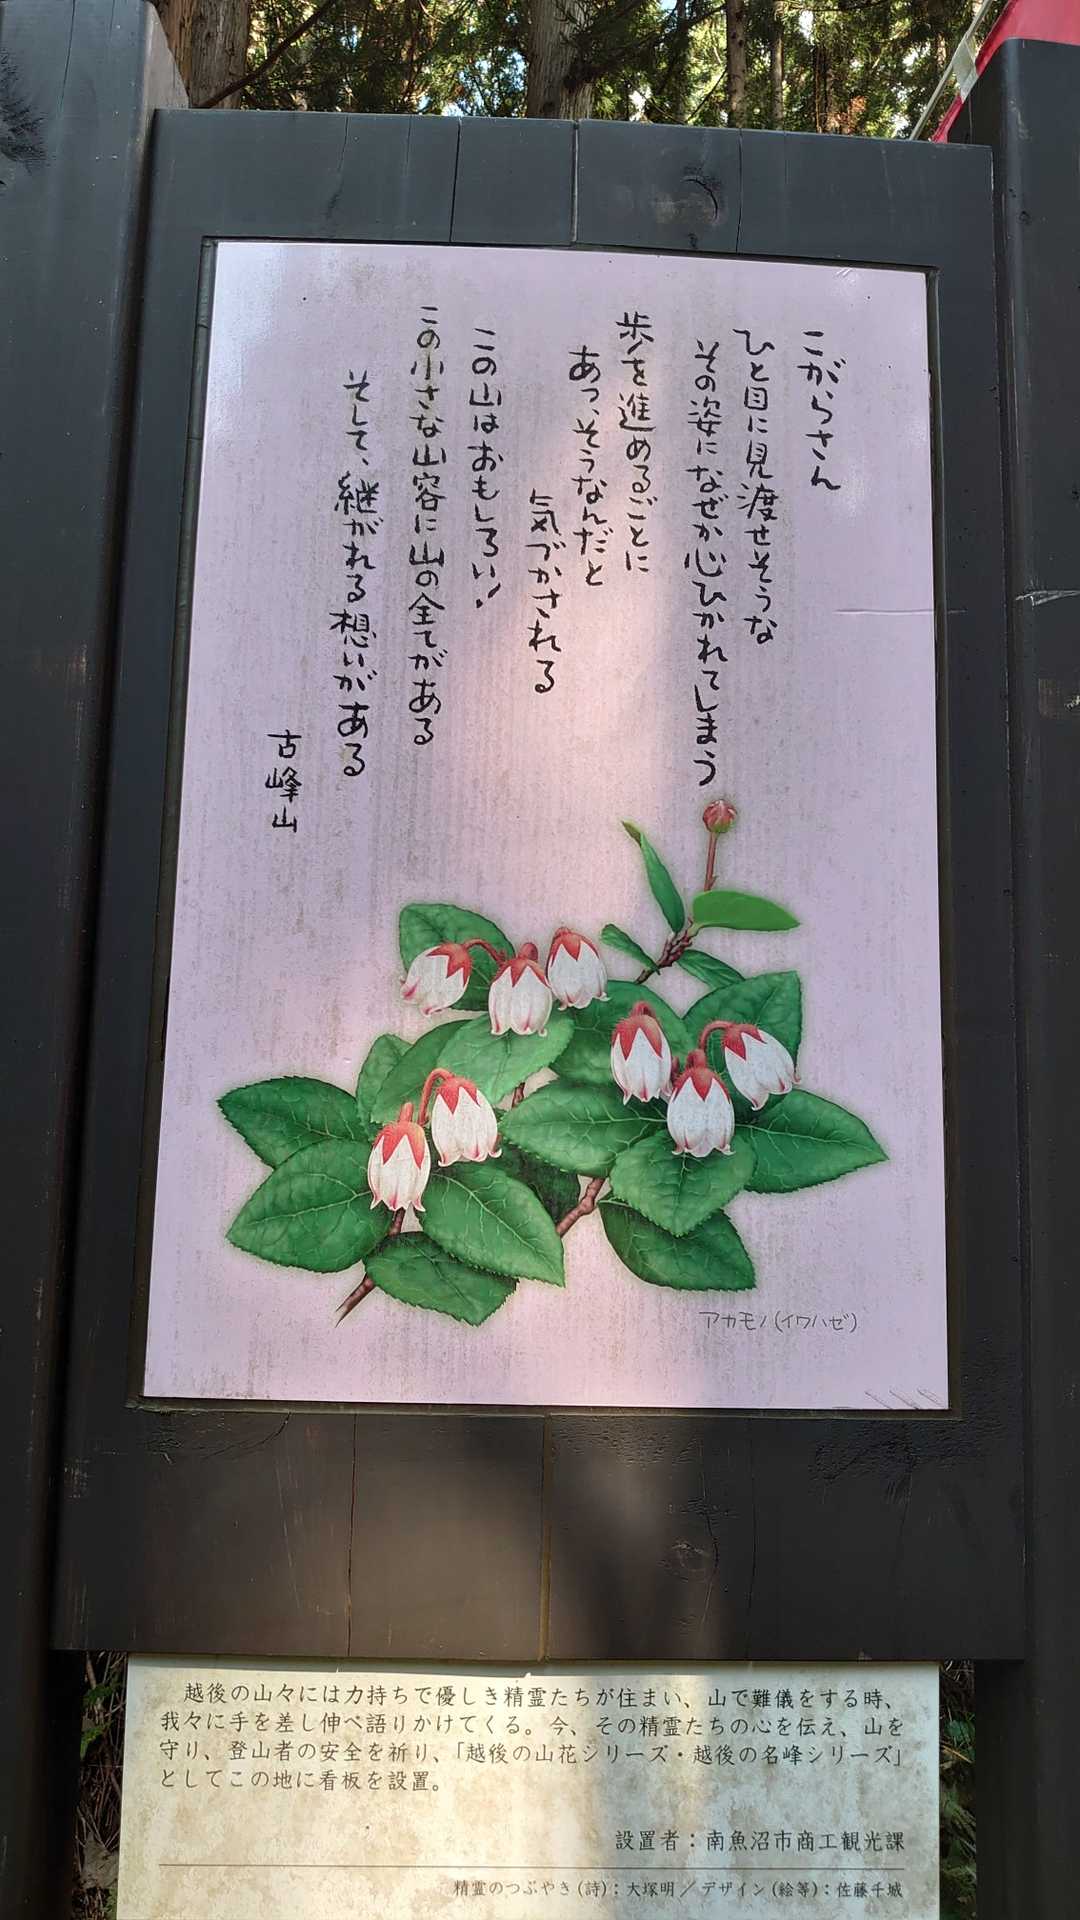 こがらさん
ひと目に見渡せそうな
その姿になぜか心ひかれてしまう
歩を進めるごとに
あっ、そうなんだと
気づかされる
この山はおもしろい!
この小さな山容に山の全てがある
そして、継がれる想いがある
古峰山
アカモノ(イワハゼ)
越後の山々には力持ちで優しき精霊たちが住まい、山で難儀をする時、
我々に手を差し伸べ語りかけてくる。今、その精霊たちの心を伝え、山を
守り、登山者の安全を祈り、「越後の山花シリーズ・越後の名峰シリーズ」
としてこの地に看板を設置。
設置者：南魚沼市商工観光課
精霊のつぶやき(詩)：大塚明／デザイン(絵等)：佐藤千城